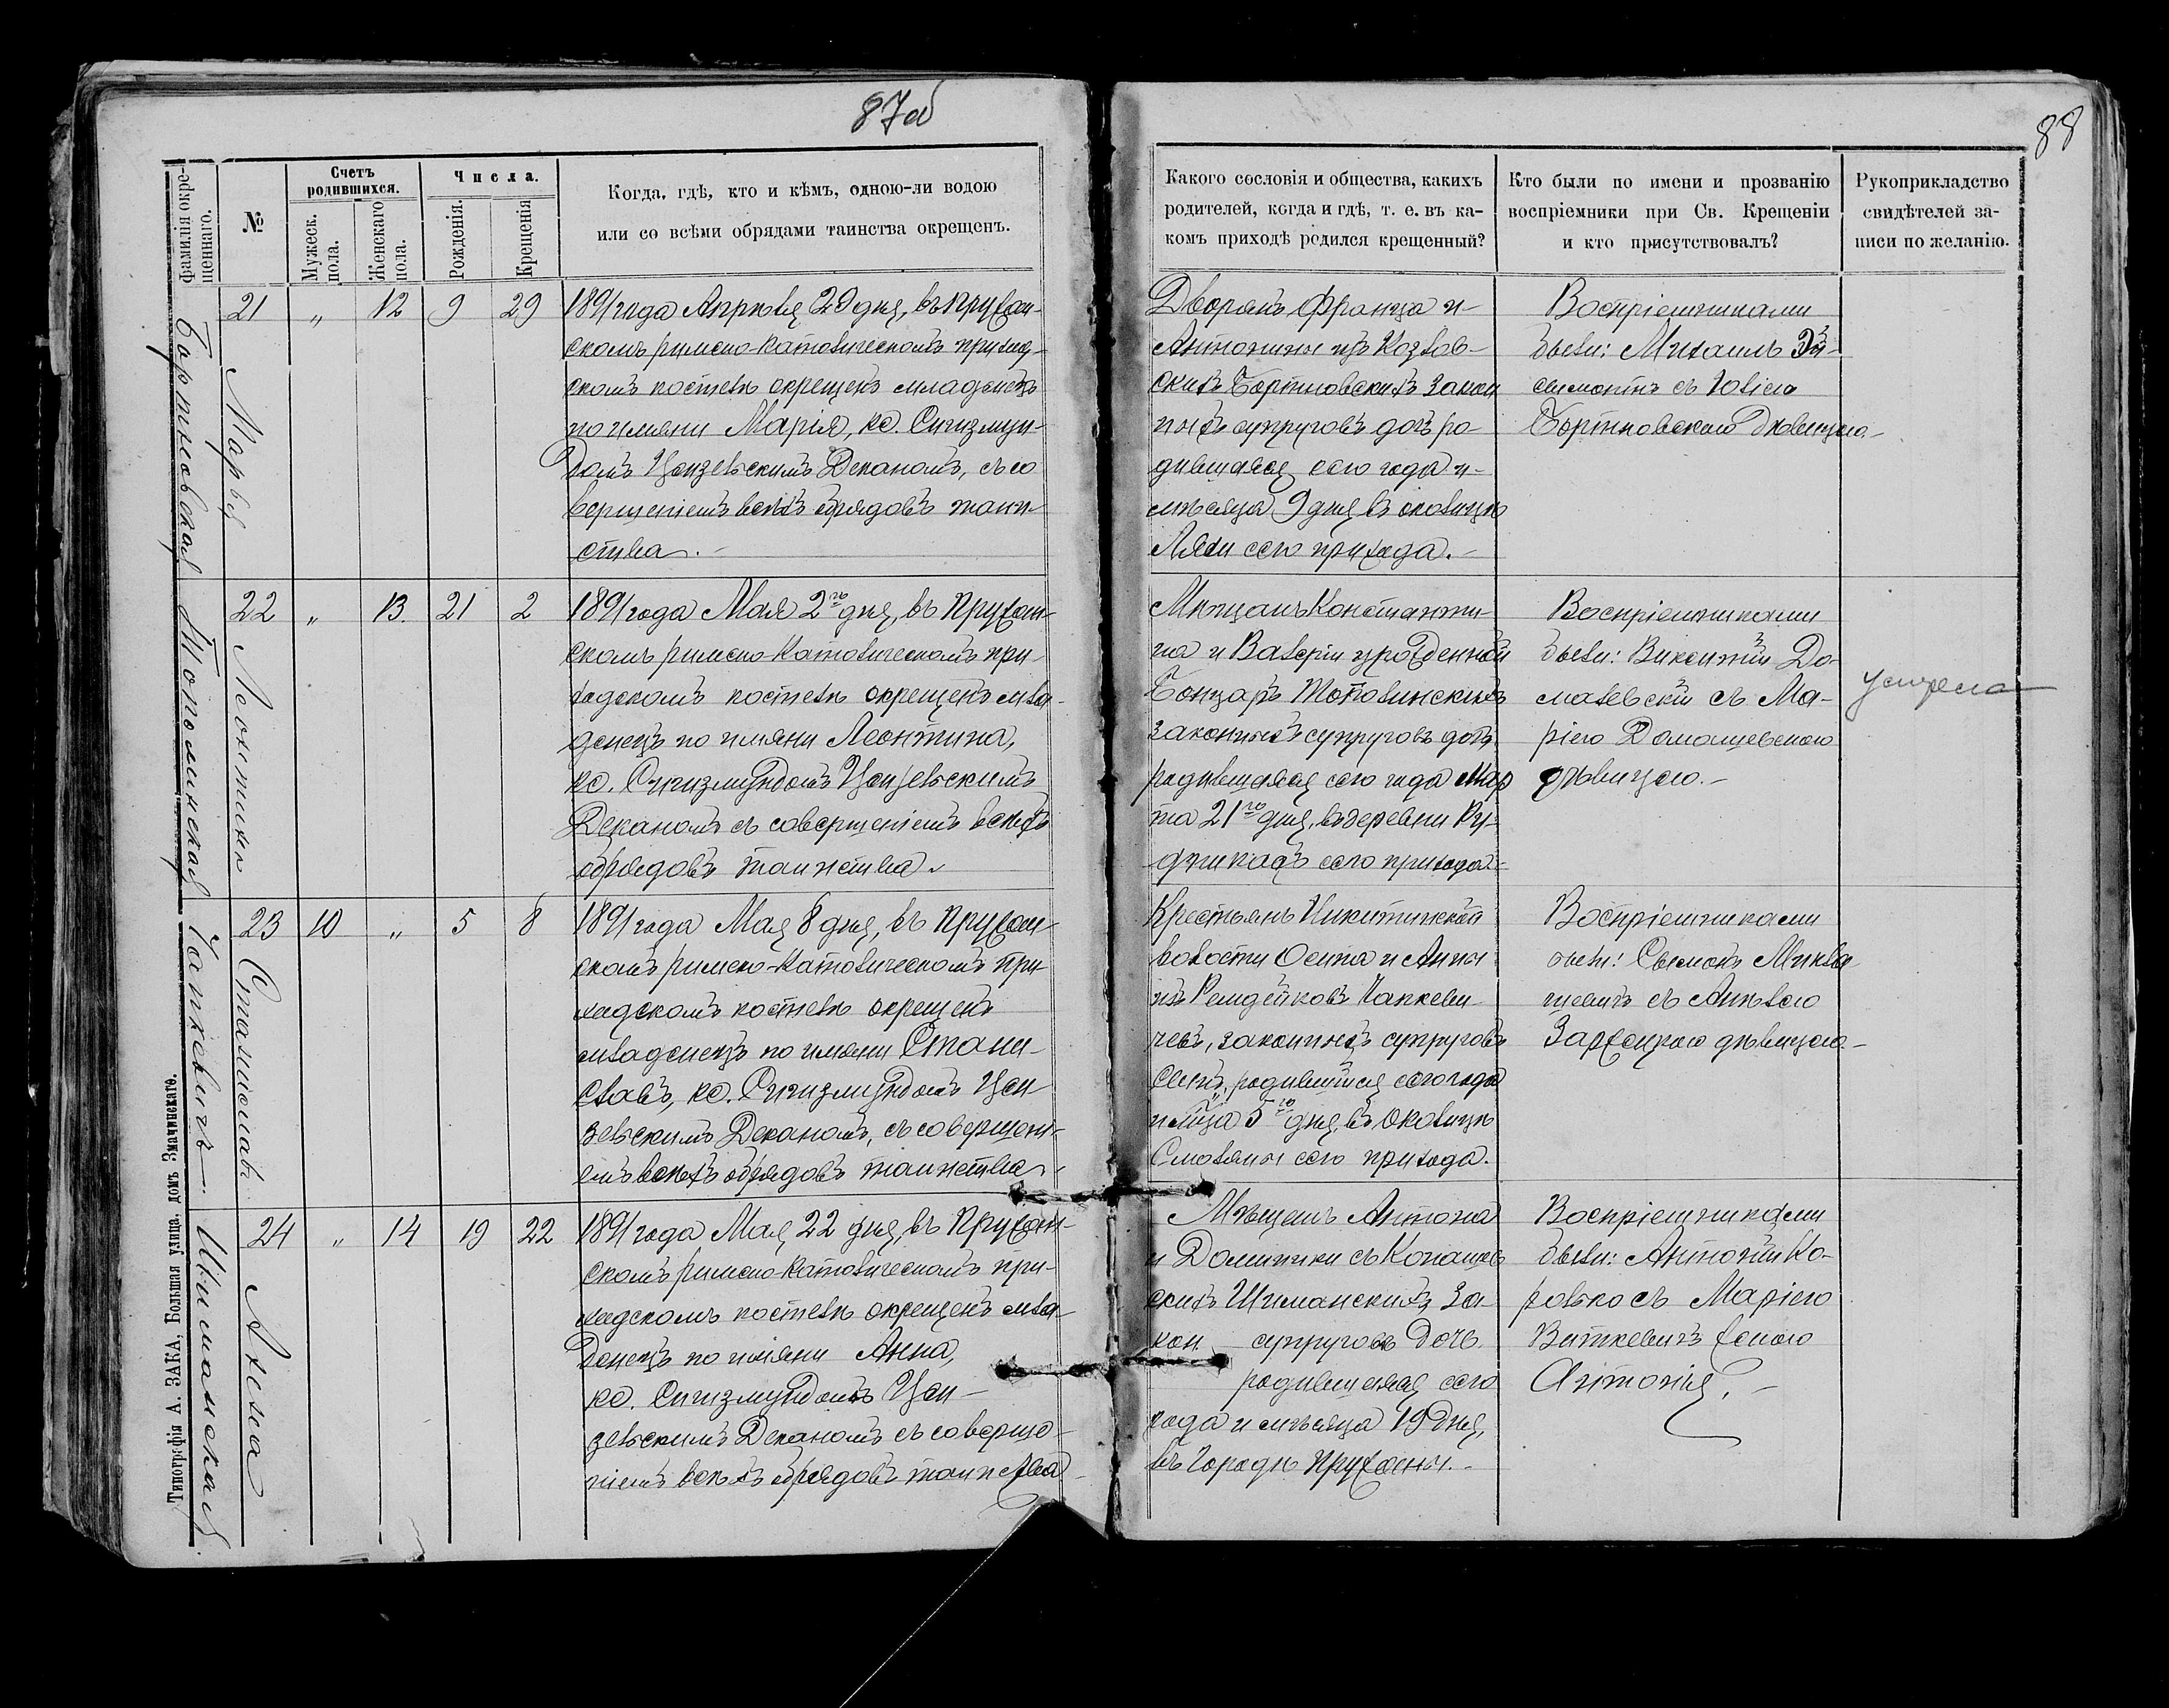 87об
88
Фамилія окре-
щеннаго.
№
Счетъ
родившихся.
Мужеск.
пола.
Женскаго
пола.
Числа.
Рожденія.
Крещенія
Когда, гдѣ, кто и кѣмъ, одною-ли водою
или со всѣми обрядами таинства окрещенъ.
Какого сословія и общества, какихъ
родителей, когда и гдѣ, т. е. въ ка-
комъ приходѣ родился крещенный?
Кто были по имени и прозванію
воспріемники при Св. Крещеніи
и кто присутствовалъ?
Рукоприкладство
свидѣтелей за-
писи по желанію.
Бортновская
Марья
21 „ 12 9 29
1891 года Апрѣля 29 дня, въ Пружан-
скомъ римско-католическомъ приход-
скомъ костелѣ окрещенъ младенецъ
по имяни Марія, кс. Сигизмун-
домъ Цензельскимъ Деканомъ, съ со
вершеніемъ всѣхъ обрядовъ таин-
ства.
Дворянъ Франца и
Антонины изъ Козлов-
скихъ Бортновскихъ закон
ныхъ супруговъ дочь ро-
дившаяся сего года и
мѣсяца 9 дня въ околицѣ
Ляхи сего прихода.
Воспріемниками
были: Михаилъ Эй-
симонтъ съ Юліею
Бортновскою дѣвицею
Тополинская
Леонтина
22 „ 13. 21 2
1891 года Мая 2го дня, въ Пружан-
скомъ римско-католическомъ при-
ходскомъ костелѣ окрещенъ мла-
денецъ по имяни Леонтина,
кс. Сигизмундомъ Цензельскимъ
Деканомъ съ совершеніемъ всѣхъ
обрядовъ таинства
Мѣщанъ Константи-
на и Валеріи урожденной
Бонцаръ Тополинскихъ
законныхъ супруговъ дочь
родившаяся сего года Мар
та 21го дня, въ деревни Ру-
дникахъ сего прихода.
Воспріемниками
были: Викентій До-
малевскій съ Ма-
ріею Домашевскою
дѣвицею.
умерла
Чапкевичъ
Станиславъ
23 10 „ 5 8
1891 года Мая 8 дня, въ Пружан-
скомъ римско-католическомъ при-
ходскомъ костелѣ окрещенъ
младенецъ по имяни Стани-
славъ, кс. Сигизмундомъ Цен
зельскимъ Деканомъ, съ совершені-
емъ всѣхъ обрядовъ таинства
Крестьянъ Микитинской
волости Осипа и Анны
изъ Чапкеви-
чевъ, законныхъ супруговъ
сынъ, родившійся сего года
и мѣсца 5го дня, въ околицѣ
Смоляны сего прихода.
Воспріемниками
были: Сымонъ Микла
шевичъ съ Анѣлею
Зарецкою дѣвицею
Шиманская
Анна
24 „ 14 19 22
1891 года Мая 22 дня, въ Пружан-
скомъ римско-католическомъ при-
ходскомъ костелѣ окрещенъ мла-
денецъ по имяни Анна,
кс. Сигизмундомъ Цен-
зельскимъ Деканомъ съ соверше-
ніемъ всѣхъ обрядовъ таинства
Мѣщанъ Антона
и Доминики съ
скихъ Шиманскихъ за-
кон. супруговъ дочь
родившаяся сего
года и мѣсяца 19 дня,
въ городѣ Пружаны.
Воспріемниками
были: Антоній Ко-
ролько съ Маріею
Виткевичъ женою
Антонія.
Типографія А. ЗАКА, Большая улица, домъ Змачинскаго.